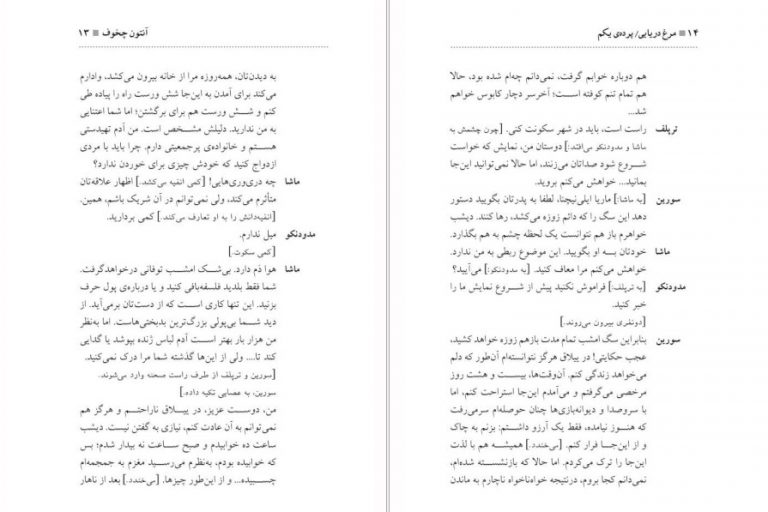 آنتون چخوف ≡ ۱۳
به دیدن‌تان، همه‌روزه مرا از خانه بیرون می‌کشد، وادارم
می‌کند برای آمدن به این‌جا شش ورست راه را پیاده طی
کنم و شش ورست هم برای برگشتن؛ اما شما اعتنایی
به من ندارید. دلیلش مشخص است. من آدم تهیدستی
هستم و خانواده‌ی پرجمعیتی دارم. چرا باید با مردی
ازدواج کنید که خودش چیزی برای خوردن ندارد؟
ماشا چه دری‌وری‌هایی! [کمی انفیه می‌کشد.] اظهار علاقه‌تان
متأثرم می‌کند، ولی نمی‌توانم در آن شریک باشم، همین.
[انفیه‌دانش را به او تعارف می‌کند.] کمی بردارید.
مدودنکو میل ندارم.
[کمی سکوت.]
ماشا هوا دَم دارد. بی‌شک امشب توفانی درخواهدگرفت.
شما فقط بلدید فلسفه‌بافی کنید و یا درباره‌ی پول حرف
بزنید. این تنها کاری است که از دست‌تان برمی‌آید. از
دید شما بی‌پولی بزرگ‌ترین بدبختی‌هاست. اما به‌نظر
من هزار بار بهتر است آدم لباس ژنده بپوشد یا گدایی
کند تا.... ولی از این‌ها گذشته شما مرا درک نمی‌کنید.
[سورین و ترپلف از طرف راست صحنه وارد می‌شوند.
سورین، به عصایی تکیه داده.]
من، دوست عزیز، در ییلاق ناراحتم و هرگز هم
نمی‌توانم به آن عادت کنم، نیازی به گفتن نیست. دیشب
ساعت ده خوابیدم و صبح ساعت نه بیدار شدم؛ بس
که خوابیده بودم، به‌نظرم می‌رسید مغزم به جمجمه‌ام
چسبیده... و از این‌طور چیزها. [می‌خندد.] بعد از ناهار
۱۴ ≡ مرغ دریایی/ پرده‌ی یکم
هم دوباره خوابم گرفت، نمی‌دانم چه‌ام شده بود، حالا
هم تمام تنم کوفته است؛ آخرسر دچار کابوس خواهم
شد...
ترپلف راست است، باید در شهر سکونت کنی. [چون چشمش به
ماشا و مدودنکو می‌افتد:] دوستان من، نمایش که خواست
شروع شود صداتان می‌زنند، اما حالا نمی‌توانید این‌جا
بمانید... خواهش می‌کنم بروید.
سورین [به ماشا:] ماریا ایلی‌نیچنا، لطفا به پدرتان بگویید دستور
دهد این سگ را که دائم زوزه می‌کشد، رها کنند. دیشب
خواهرم باز هم نتوانست یک لحظه چشم به هم بگذارد.
ماشا خودتان به او بگویید. این موضوع ربطی به من ندارد.
خواهش می‌کنم مرا معاف کنید. [به مدودنکو:] می‌آیید؟
مدودنکو [به ترپلف:] فراموش نکنید پیش از شروع نمایش ما را
خبر کنید.
[دونفری بیرون می‌روند.]
سورین بنابراین سگ امشب تمام مدت بازهم زوزه خواهد کشید،
عجب حکایتی! در ییلاق هرگز نتوانسته‌ام آن‌طور که دلم
می‌خواهد زندگی کنم. آن‌وقت‌ها، بیست و هشت روز
مرخصی می‌گرفتم و می‌آمدم این‌جا استراحت کنم، اما
با سروصدا و دیوانه‌بازی‌ها چنان حوصله‌ام سرمی‌رفت
که هنوز نیامده، فقط یک آرزو داشتم: بزنم به چاک
و از این‌جا فرار کنم. [می‌خندد.] همیشه هم با لذت
این‌جا را ترک می‌کردم. اما حالا که بازنشسته شده‌ام،
نمی‌دانم کجا بروم، درنتیجه خواه‌ناخواه ناچارم به ماندن